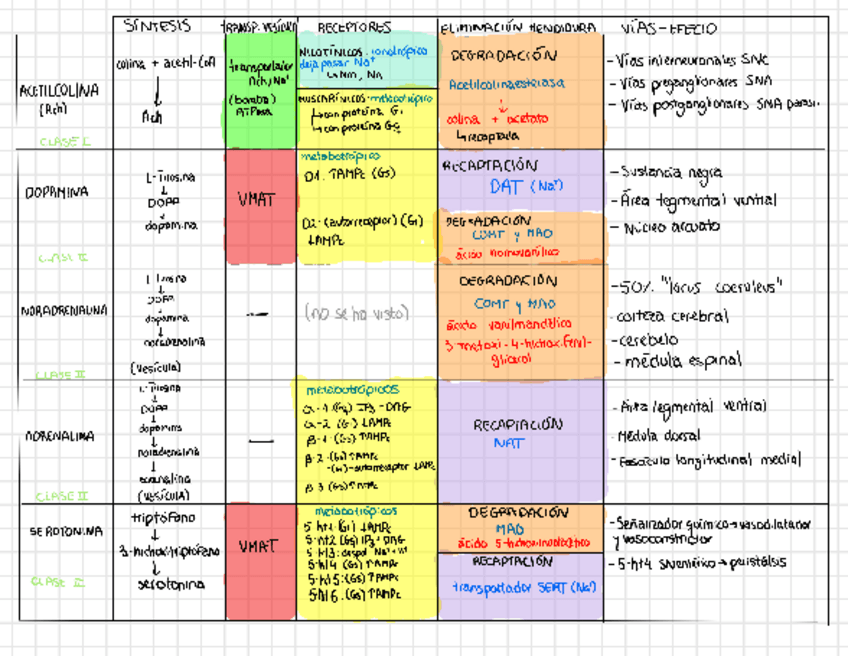 SÍNTESIS TRANSP. VESÍCULA RECEPTORES ELIMINACIÓN HENDIDURA VÍAS-EFECTO
ACETILCOLINA
(Ach)
CLASE I
colina + acetil-CoA
↓
Ach
transportador
Ach/Na⁺
(bomba)
ATPasa
NICOTÍNICOS: ionotrópico
deja pasar Na⁺
MUSCARÍNICOS: metabotrópico
con proteína Gi
con proteína Gq
DEGRADACIÓN
Acetilcolinaesterasa
↓
colina + acetato
↳ recaptada
- Vías interneuronales SNC
- Vías preganglionares SNA
- Vías postganglionares SNA parasi.
DOPAMINA
CLASE II
L-Tirosina
↓
DOPA
↓
dopamina
VMAT
metabotrópico
D1. ↑AMPc (Gs)
D2. (autorreceptor) (Gi)
↓AMPc
RECAPTACIÓN
DAT (Na⁺)
DEGRADACIÓN
COMT y MAO
ácido homovanílico
- Sustancia negra
- Área tegmental ventral
- Núcleo arcuato
NORADRENALINA
CLASE II
L-Tirosina
↓
DOPA
↓
dopamina
↓
noradrenalina
(vesícula)
—
(no se ha visto)
DEGRADACIÓN
COMT y MAO
ácido vanilmandélico
3-metoxi-4-hidroxifenil-
glicerol
- 50% "locus coeruleus"
- corteza cerebral
- cerebelo
- médula espinal
ADRENALINA
CLASE II
L-Tirosina
↓
DOPA
↓
dopamina
↓
noradrenalina
↓
adrenalina
(vesícula)
—
metabotrópicos
α-1 (Gq) IP3-DAG
α-2 (Gi) ↓AMPc
β-1 (Gs) ↑AMPc
β-2 (Gs) ↑AMPc
-(Gi)-autorreceptor ↓AMPc
β-3 (Gs) ↑AMPc
RECAPTACIÓN
NAT
- Área tegmental ventral
- Médula dorsal
- Fascículo longitudinal medial
SEROTONINA
CLASE II
triptófano
↓
3-hidroxitriptófano
↓
serotonina
VMAT
metabotrópicos
5-ht1 (Gi) ↓AMPc
5-ht2 (Gs) IP3-DAG
5-ht4 (Gs) ↑AMPc
5-ht5 (Gs) ↑AMPc
5-ht6 (Gs) ↑AMPc
DEGRADACIÓN
MAO
RECAPTACIÓN
transportador SERT (Na⁺)
- Señalizador químico → vasodilatador
y vasoconstrictor
- 5-ht4 → peristalsis